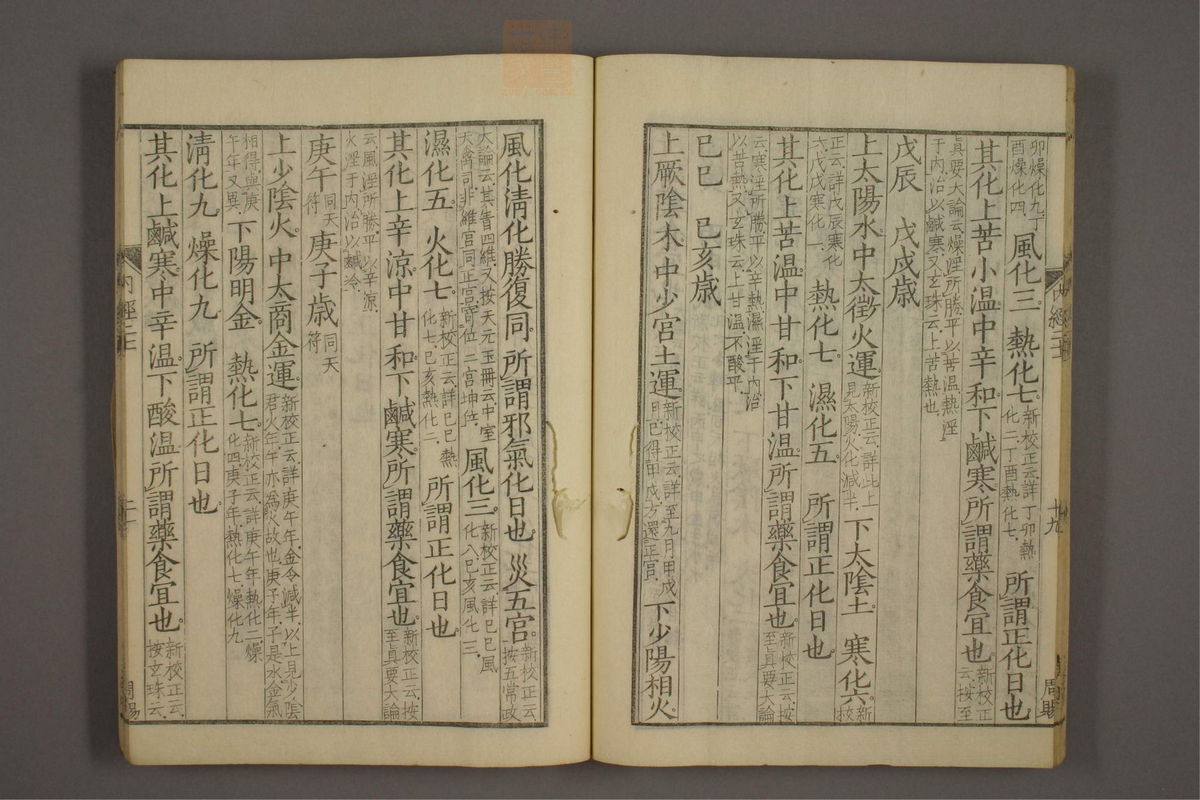 卯燥化九丁
酉燥化四 風化三 熱化七 新校正云詳丁卯熱
化二丁酉熱化七 所謂正化日也
其化上苦小溫中辛和下鹹寒所謂藥食宜也 新校正
云按至
真要大論云燥淫所勝平以苦溫熱淫
于內治以鹹寒又玄珠云上苦熱也
戊辰 戊戌歲
上太陽水中太徵火運 新校正云詳此上
見太陽火化減半 下太陰土 寒化六 新
校
正云詳戊辰寒化
六戊戌寒化一 熱化七 濕化五 所謂正化日也
其化上苦溫中甘和下甘溫所謂藥食宜也 新校正云按
至真要大論
云寒淫所勝平以辛熱濕淫于內治
以苦熱又玄珠云上甘溫下酸平
己巳 己亥歲
上厥陰木中少宮土運 新校正云詳至九月甲戌
月已得甲戌方還正宮 下少陽相火
風化清化勝復同所謂邪氣化日也災五宮 新校正云
按五常政
大論云其眚四維又按天元玉冊云中室
天禽司非維宮同正宮寄位二宮坤位 風化三 新校正云詳己巳風
化八己亥風化三
濕化五 火化七 新校正云詳己巳熱
化七己亥熱化二 所謂正化日也
其化上辛涼中甘和下鹹寒所謂藥食宜也 新校正云按
至真要大論
云風淫所勝平以辛涼
火淫于內治以鹹冷
庚午 同天
符 庚子歲 同天
符
上少陰火中太商金運 新校正云詳庚午年金令減半以上見少陰
君火年午亦為火故也庚子年子是水金氣
相得與庚
午年又異 下陽明金 熱化七 新校正云詳庚午年熱化二燥
化四庚子年熱化七燥化九
清化九 燥化九 所謂正化日也
其化上鹹寒中辛溫下酸溫所謂藥食宜也 新校正云
按玄珠云
內經二十一
十九
周賜
內經二十一
二十
周賜